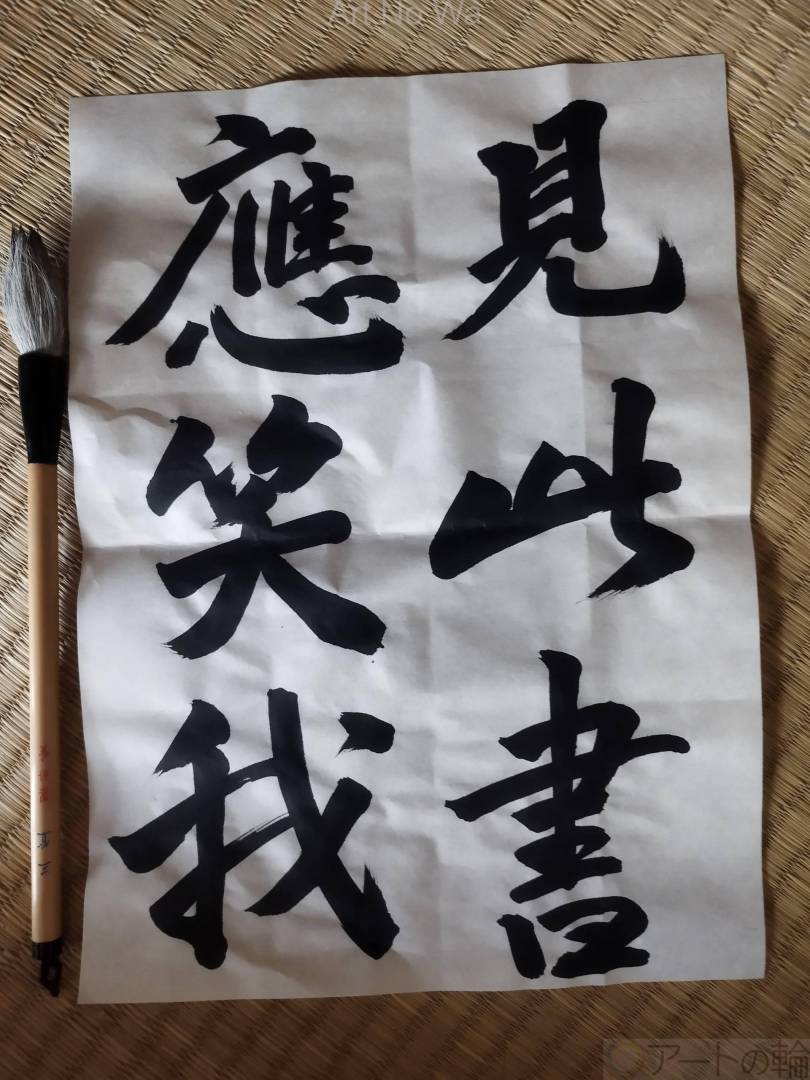 Art No Wa
見此書
應笑我
アートの輪